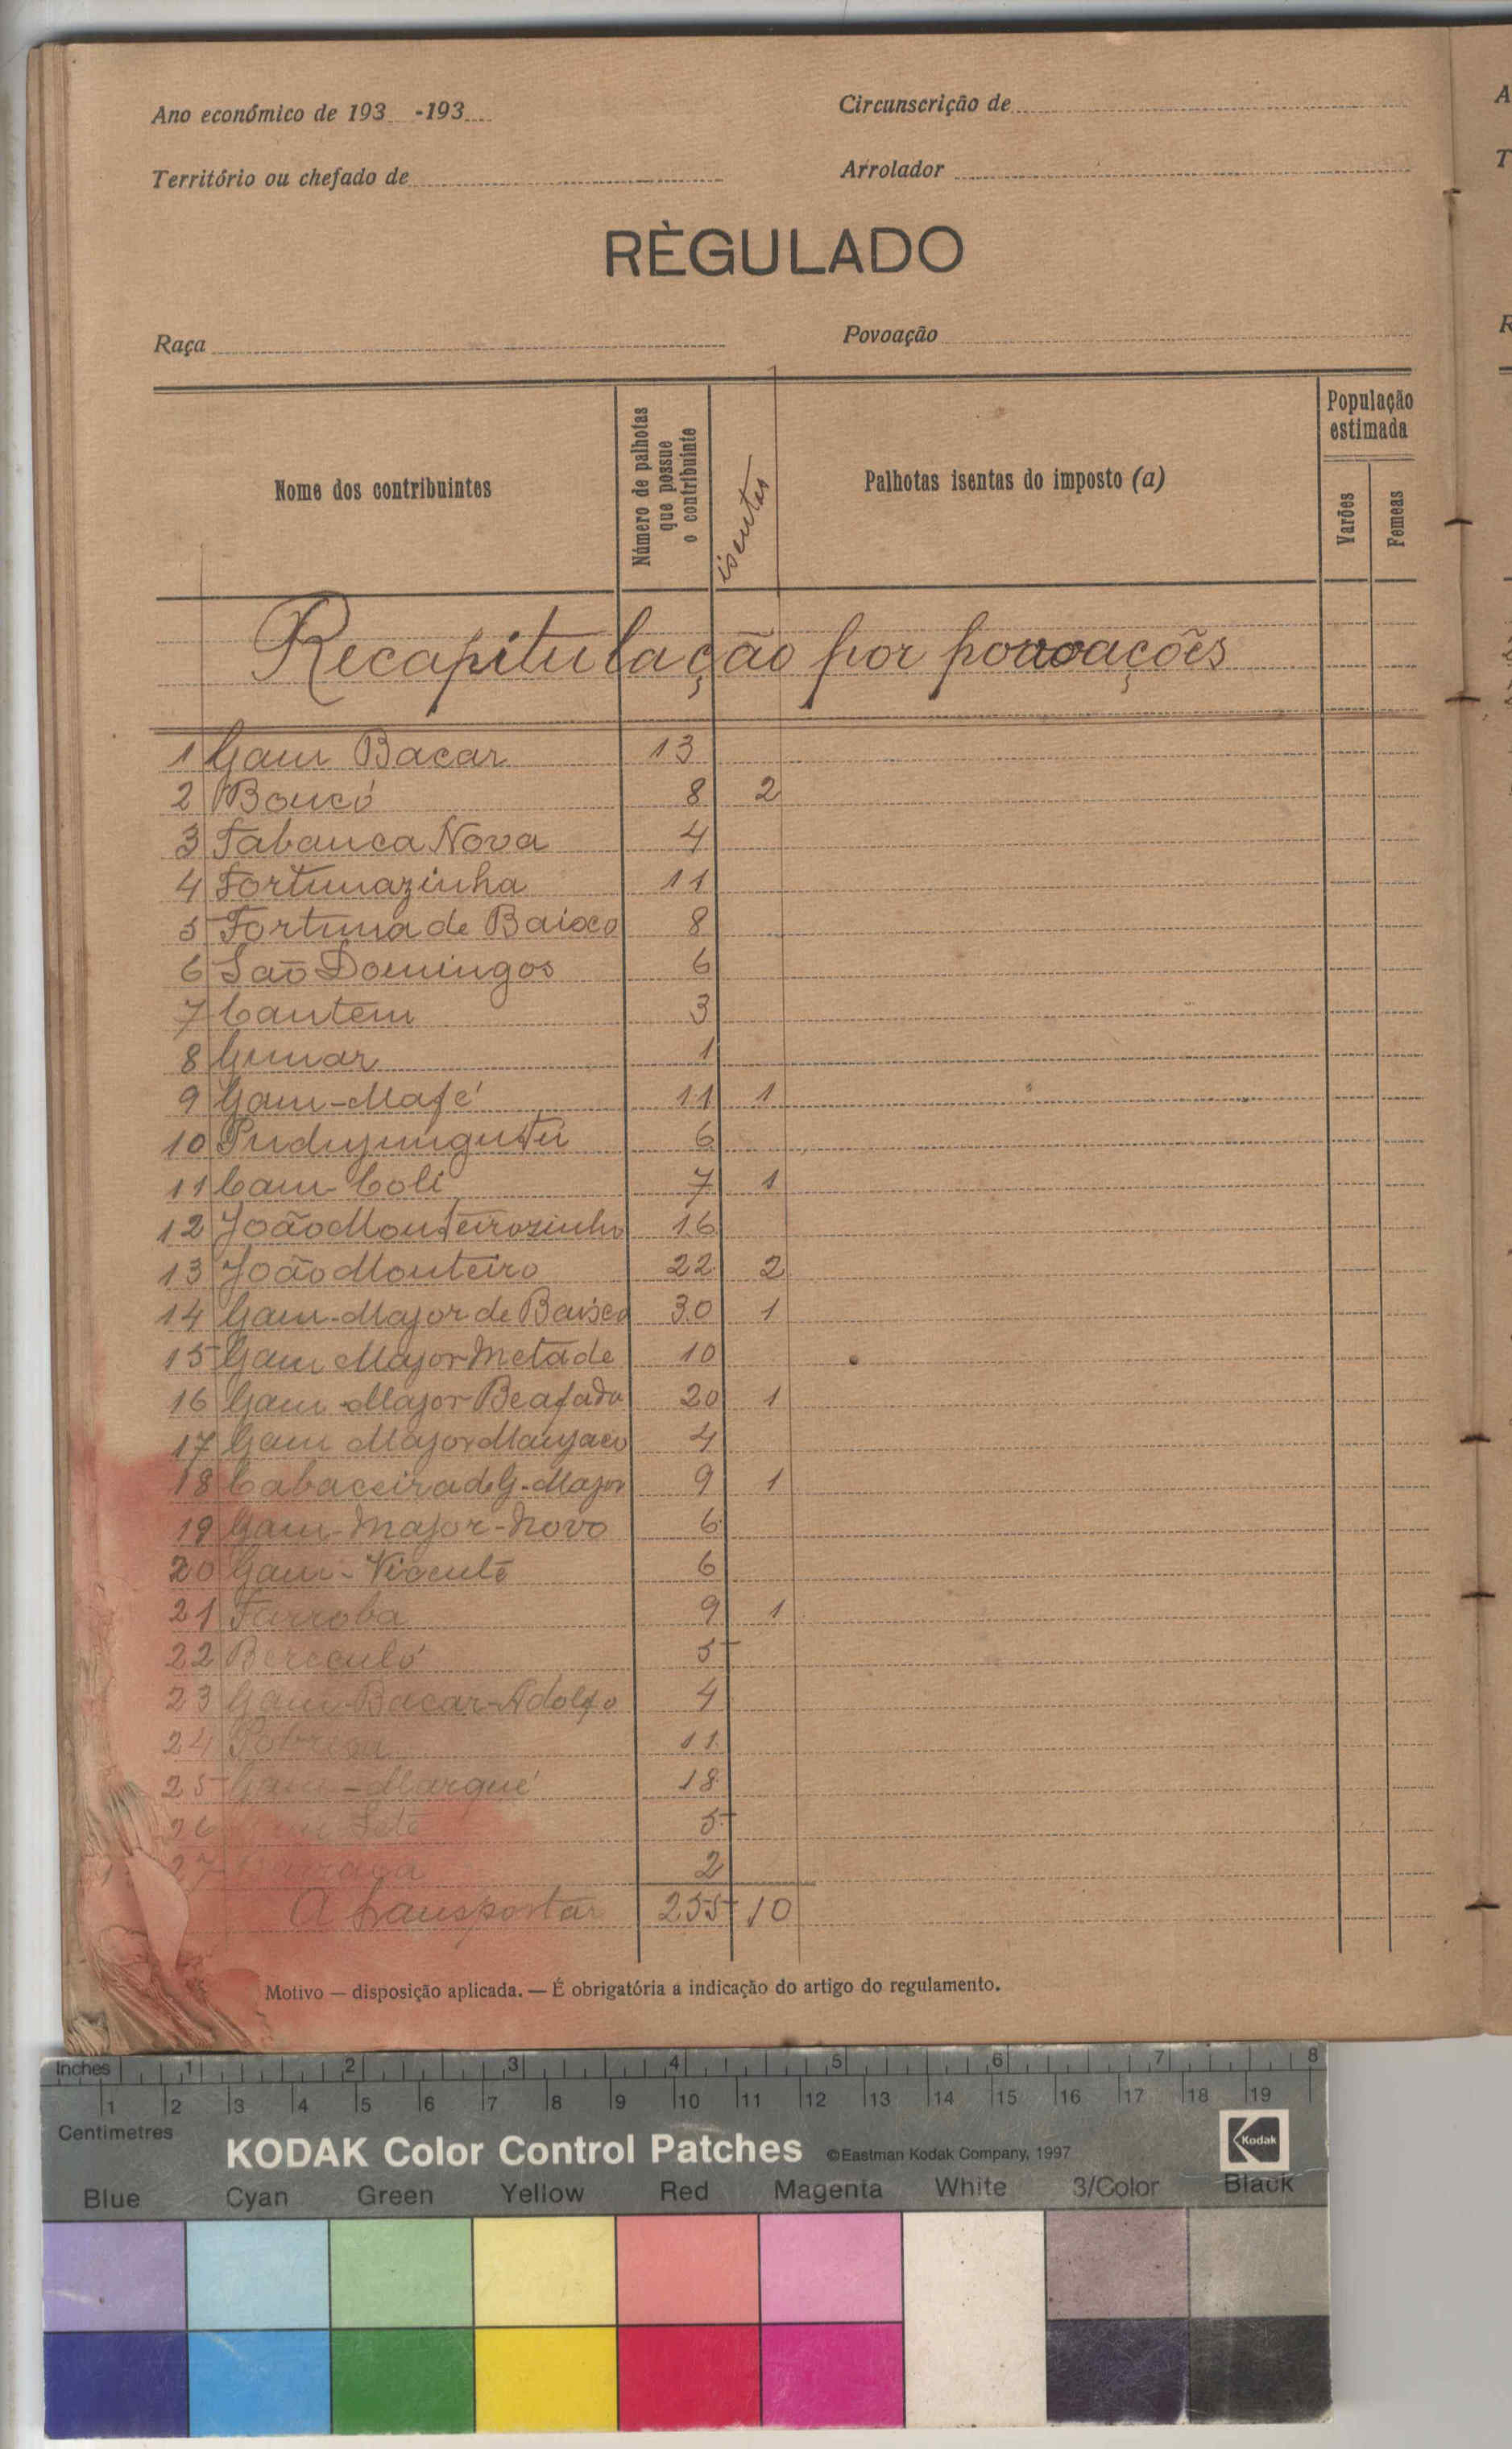 Ano económico de 193 -193
Circunscrição de
Território ou chefado de
Arrolador
RÈGULADO
Raça
Povoação
Nome dos contribuintes
Número de palhotas que possue o contribuinte
isentas
Palhotas isentas do imposto (a)
População estimada
Varões
Femeas
Recapitulação por povoações
1 Gam Bacar 13
2 Boucó 8 2
3 Tabanca Nova 4
4 Fortunazinha 11
5 Fortuna de Baixo 8
6 São Domingos 6
7 Cantem 3
8 Gumar 1
9 Gam-Mafé 11 1
10 6
11 Cam Coli 7 1
12 João Monteirosinho 16
13 João Monteiro 22 2
14 Gam-Major de Baixo 30 1
15 Gam Major Metade 10
16 Gam-Major Beafada 20 1
17 Gam Major Manjaco 4
18 Cabaceira de G-Major 9 1
19 Gam-Major-Novo 6
20 Gam-Vicente 6
21 Farroba 9 1
22 Bereculó 5
23 Gam Bacar-Adolfo 4
24 11
25 Gam-Marqué 18
26 5
27 2
A transportar 255 10
Motivo — disposição aplicada. — É obrigatória a indicação do artigo do regulamento.
Inches 1 2 3 4 5 6 7 8
1 2 3 4 5 6 7 8 9 10 11 12 13 14 15 16 17 18 19
Centimetres
KODAK Color Control Patches ©Eastman Kodak Company, 1997 Kodak
Blue Cyan Green Yellow Red Magenta White 3/Color Black